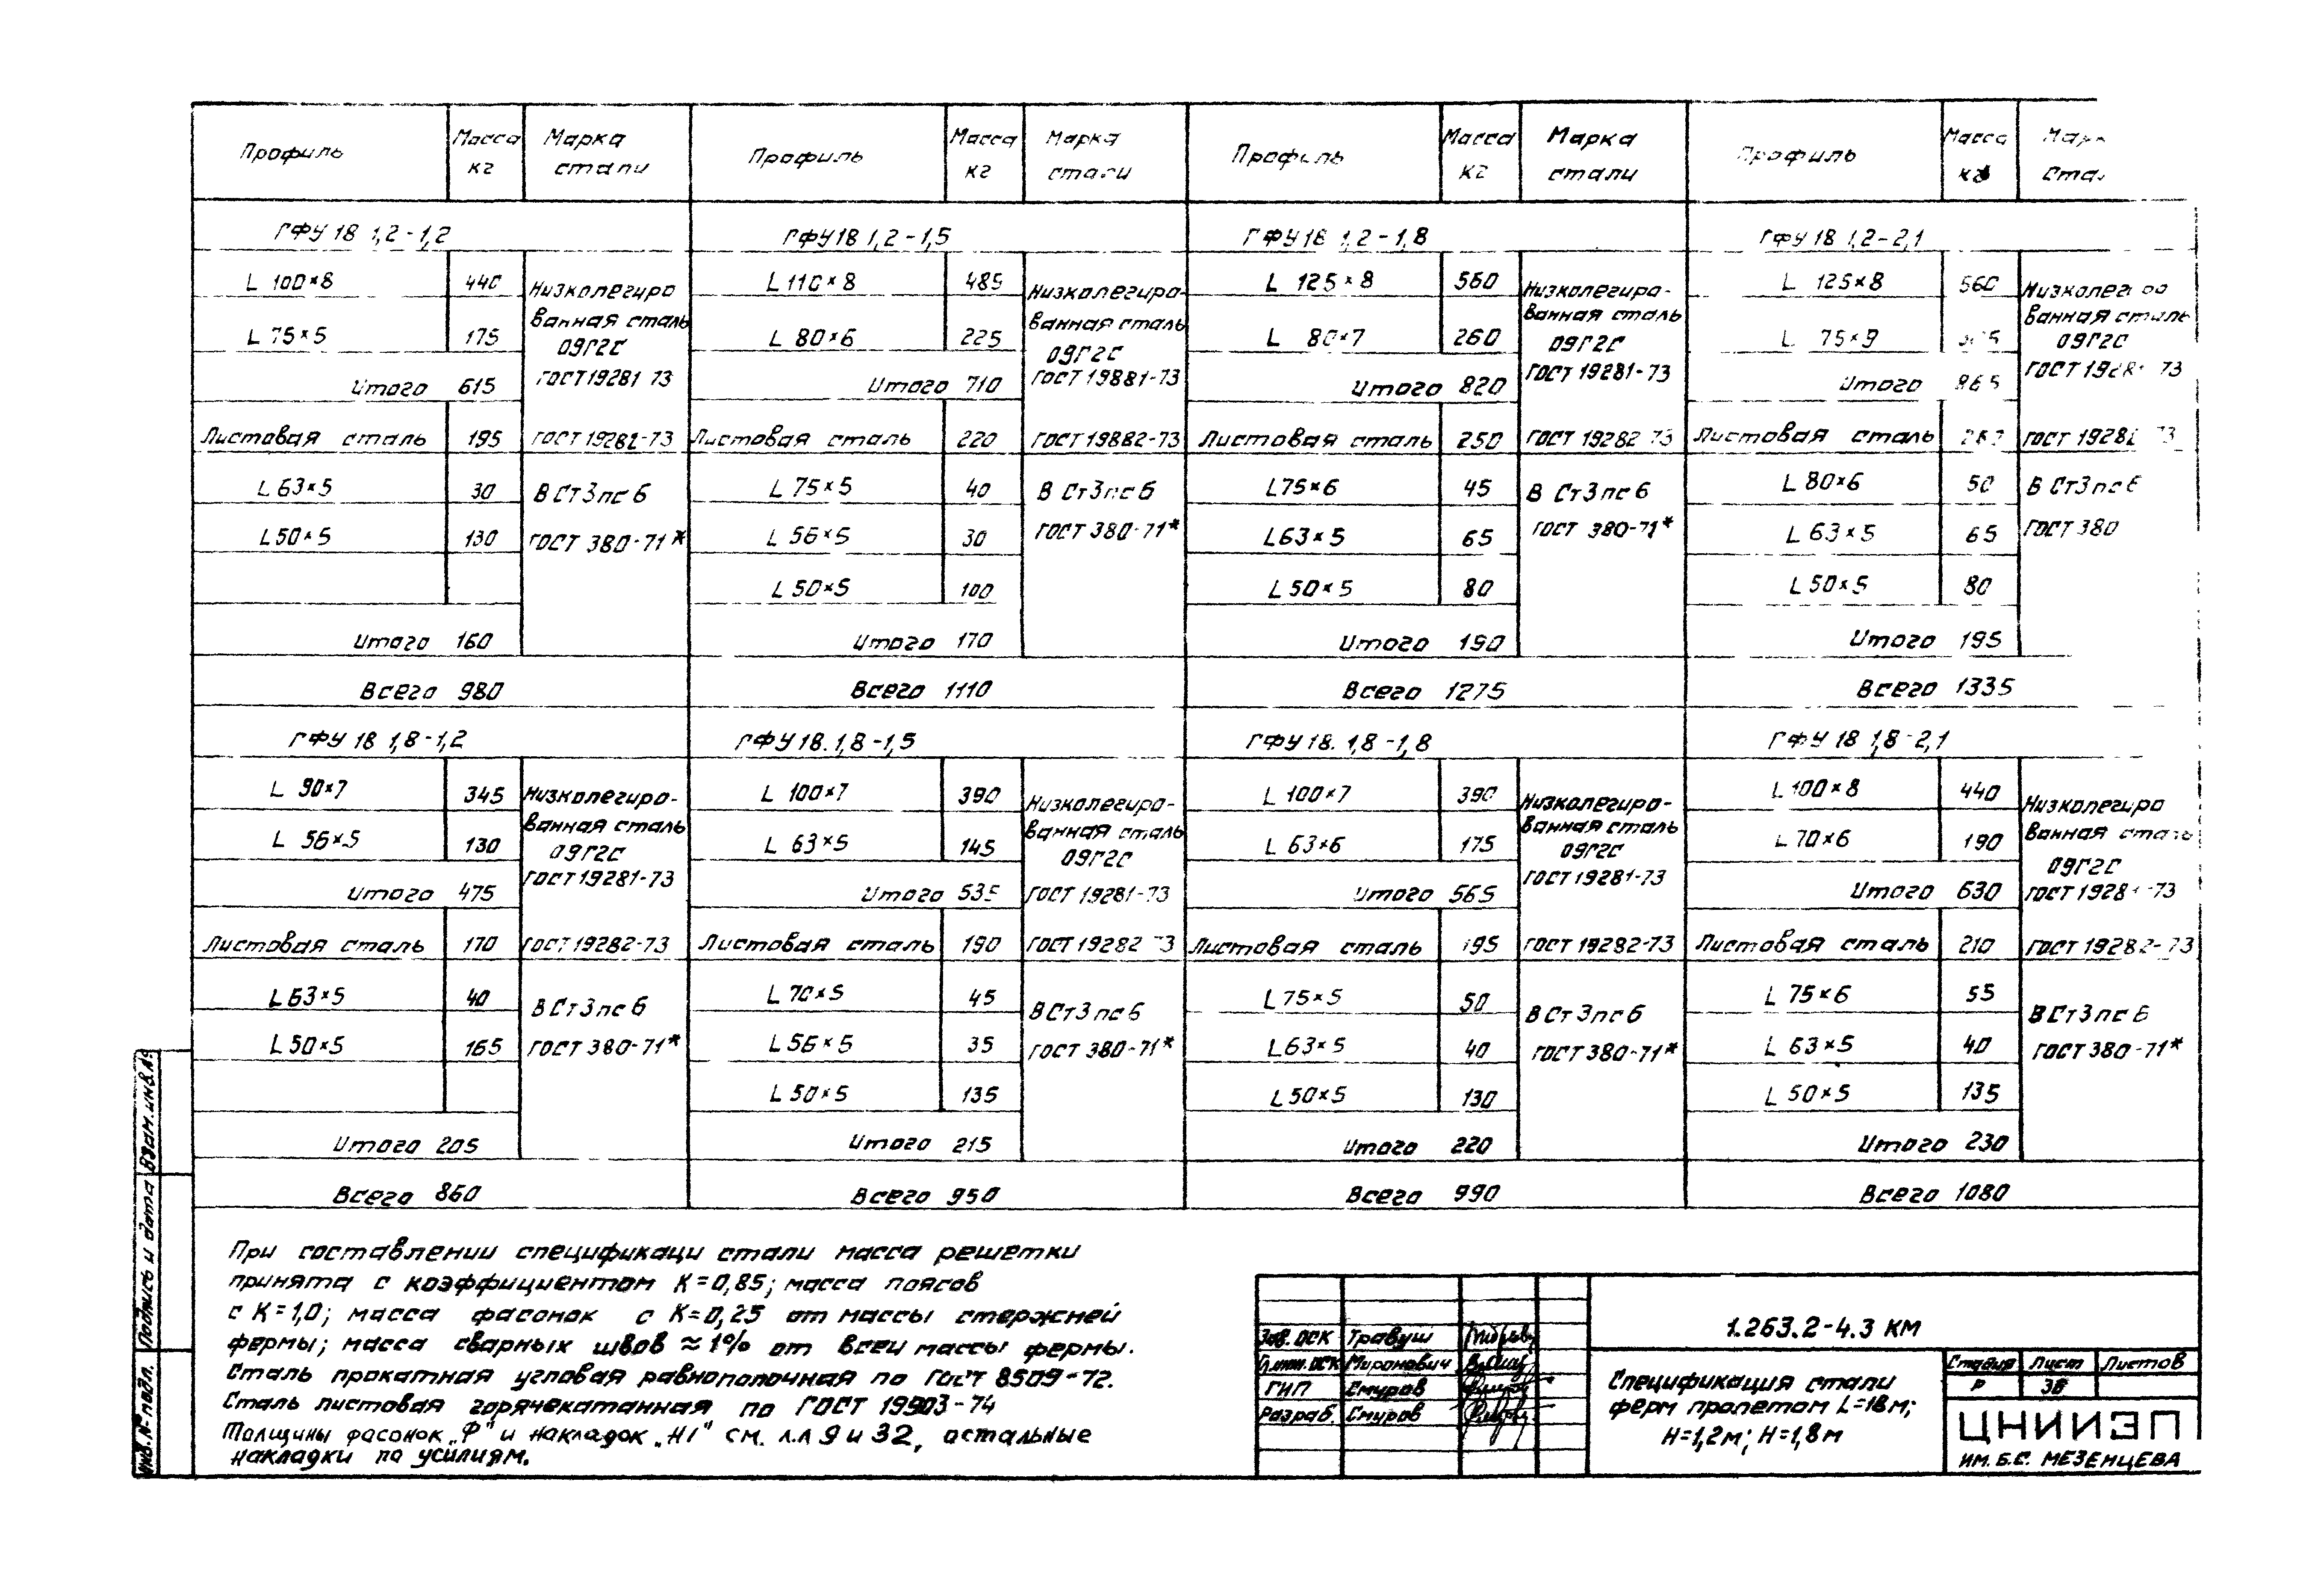 Профиль Масса кг Марка стали Профиль Масса кг Марка стали Профиль Масса кг Марка стали Профиль Масса кг
ГФУ 18 1,2-1,2
L 100×8 440 Низколегиро
ванная сталь
09Г2С
ГОСТ 19281 73
L 75×5 175
Итого 615
Листовая сталь 195 ГОСТ 19282-73
L 63×5 30 ВСт3пс6
L 50×5 130 ГОСТ 380-71*
Итого 160
Всего 980
ГФУ 18 1,2-1,5
L 110×8 485 Низколегиро-
ванная сталь
09Г2С
ГОСТ 19881-73
L 80×6 225
Итого 710
Листовая сталь 220 ГОСТ 19882-73
L 75×5 40 ВСт3пс6
L 56×5 30 ГОСТ 380-71*
L 50×5 100
Итого 170
Всего 1110
ГФУ 18 1,2-1,8
L 125×8 560 Низколегиро-
ванная сталь
09Г2С
ГОСТ 19281-73
L 80×7 260
Итого 820
Листовая сталь 250 ГОСТ 19282 73
L 75×6 45 ВСт3пс6
L 63×5 65 ГОСТ 380-71*
L 50×5 80
Итого 190
Всего 1275
ГФУ 18 1,2-2,1
L 125×8 560
ванная сталь
09Г2С
L 75×9
Итого 865
Листовая сталь
L 80×6 50 В Ст3пс6
L 63×5 65 ГОСТ 380
L 50×5 80
Итого 195
Всего 1335
ГФУ 18 1,8-1,2
L 90×7 345 Низколегиро-
ванная сталь
09Г2С
ГОСТ 19281-73
L 56×5 130
Итого 475
Листовая сталь 170 ГОСТ 19282-73
L 63×5 40 ВСт3пс6
L 50×5 165 ГОСТ 380-71*
Итого 205
Всего 860
ГФУ 18. 1,8-1,5
L 100×7 390 Низколегиро-
ванная сталь
09Г2С
ГОСТ 19281-73
L 63×5 145
Итого 535
Листовая сталь 190 ГОСТ 19282 73
L 70×5 45 ВСт3пс6
L 56×5 35 ГОСТ 380-71*
L 50×5 135
Итого 215
Всего 950
ГФУ 18. 1,8-1,8
L 100×7 390 Низколегиро-
ванная сталь
09Г2С
ГОСТ 19281-73
L 63×6 175
Итого 565
Листовая сталь 195 ГОСТ 19282-73
L 75×5 50 ВСт3пс6
L 63×5 40 ГОСТ 380-71*
L 50×5 130
Итого 220
Всего 990
ГФУ 18 1,8-2,1
L 100×8 440 Низколегиро
ванная сталь
09Г2С
ГОСТ 19281-73
L 70×6 190
Итого 630
Листовая сталь 210 ГОСТ 19282-73
L 75×6 55 ВСт3пс6
L 63×5 40 ГОСТ 380-71*
L 50×5 135
Итого 230
Всего 1080
При составлении спецификаци стали масса решетки
принята с коэффициентом К=0,85; масса поясов
с К=1,0; масса фасонок с К=0,25 от массы стержней
фермы; масса сварных швов ≈1% от всей массы фермы.
Сталь прокатная угловая равнополочная по ГОСТ 8509-72.
Сталь листовая горячекатанная по ГОСТ 19903-74
Толщины фасонок „Ф" и накладок „Н1" см. л.л 9 и 32, остальные
накладки по усилиям.
Взам.инв.№
Подпись и дата
Инв.№ подл.
Зав. ОСК Травуш
Гл.инж. ОСК Миронович
ГИП Смуров
Разраб. Смуров
1.263.2-4.3 КМ
Спецификация стали
ферм пролетом L=18м;
Н=1,2м; Н=1,8м
Стадия Лист Листов
Р 36
ЦНИИЭП
ИМ. Б.С. МЕЗЕНЦЕВА